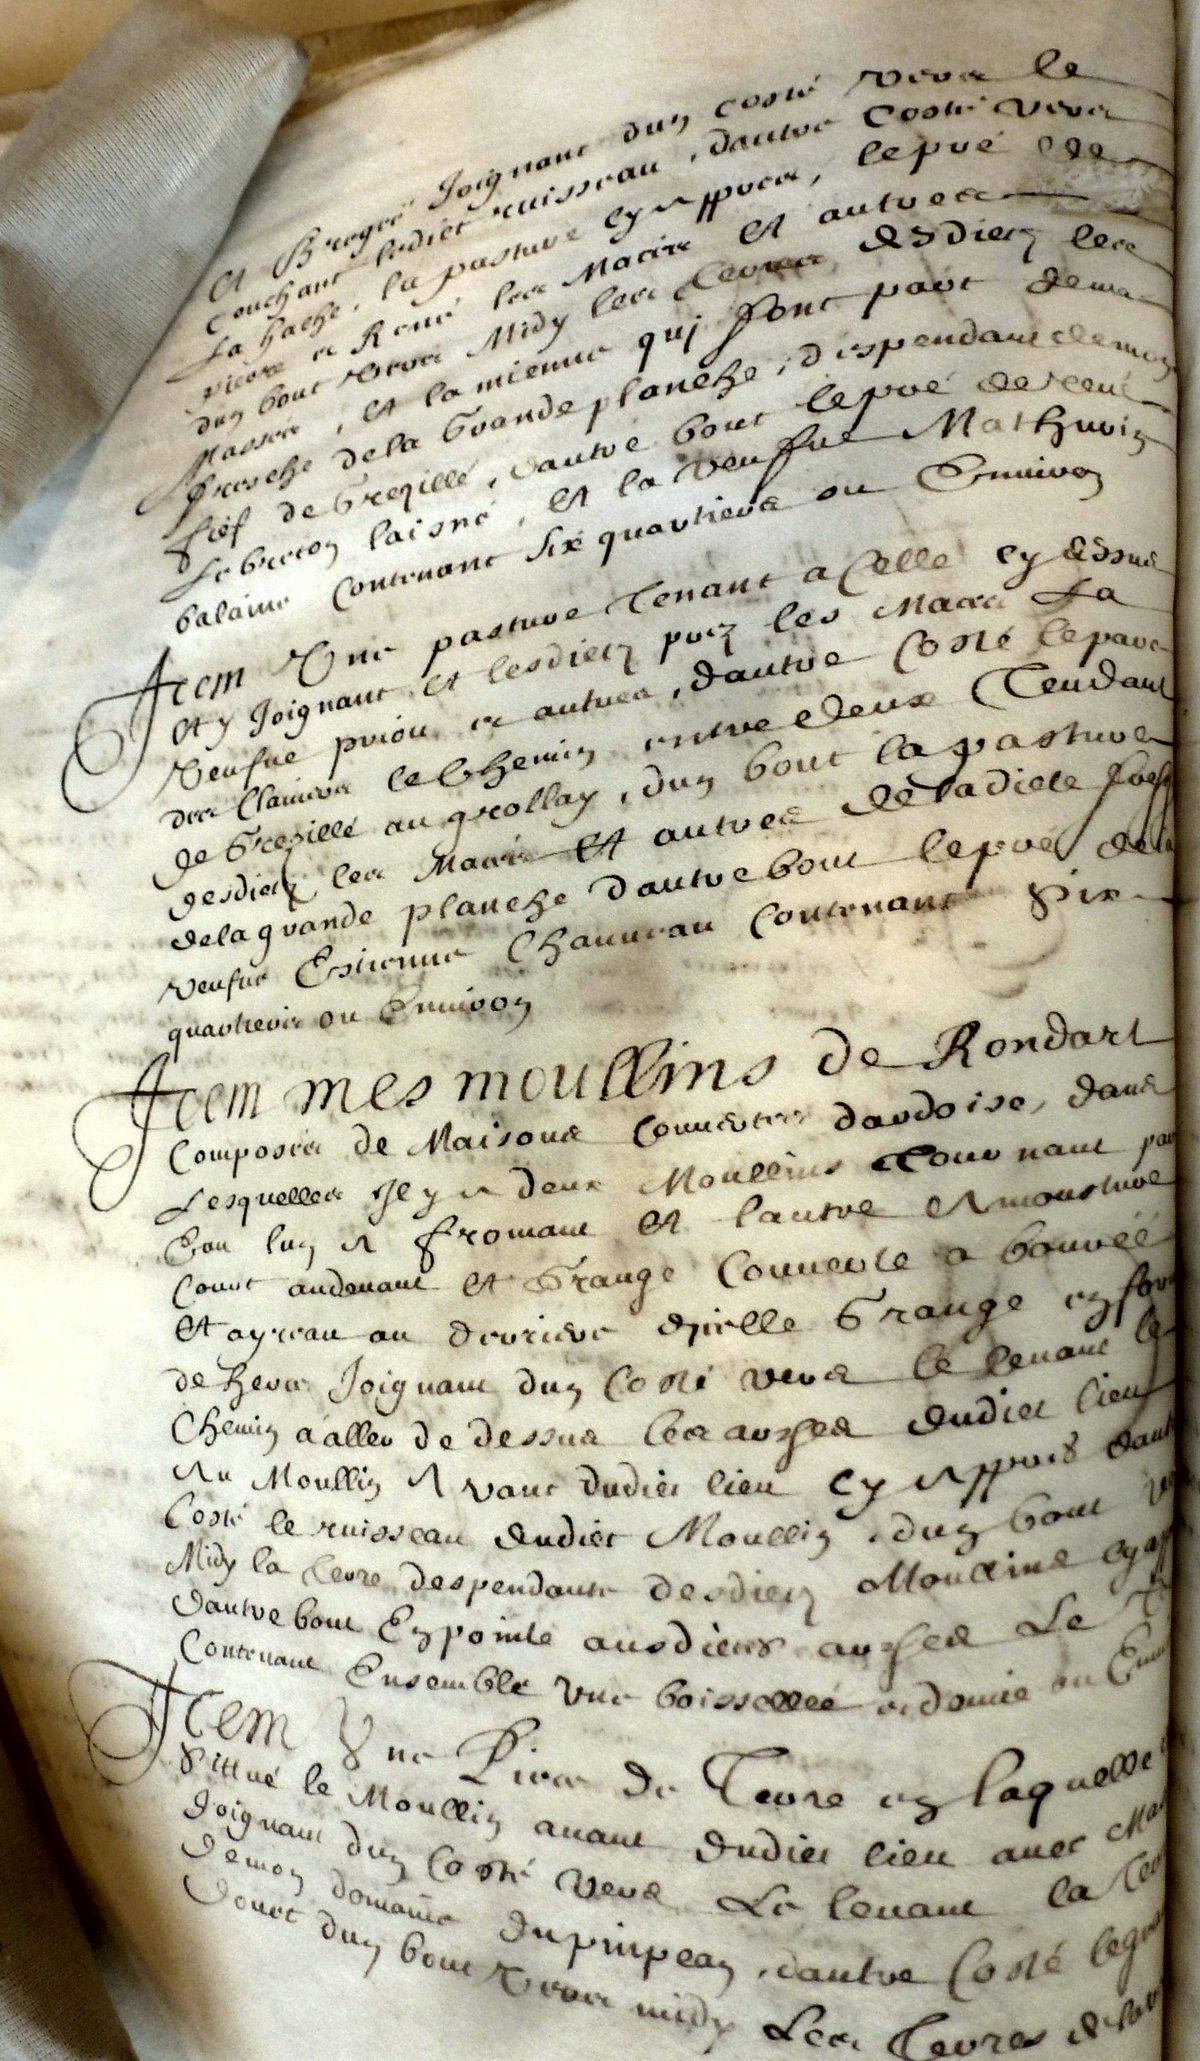 et Joignant dun costé vers le
touchant ledict ruisseau, dautre costé vers
la hache, la pasture cy appres, le pré de
pierre et René les Macés et autres
dun bout vers Midy les terres desdictz les
Masses, et la mienne quj font part de ma
fresche de la Grande planche, despendant de mon
fief de Grezillé, dautre bout le pré de René
Le breton laisné, et la veufue Mathurin
balaine Contenant six quartiers ou Enuiron
Item Vne pasture Tenant a Celle cy dessus
et y Joignant et lesdictz prez les Macés La
Veufue priou et autres, dautre Costé le parc
des le Chemin entre deux Tendant
de Grezillé au grollay, dun bout la pasture
desdictz les Macés et autres de ladicte
de la grande planche dautre bout le pré de la
veufue Estienne Chauueau Contenant Six
quartiers ou Enuiron
Item mes moullins de Rondart
Composés de Maisons Couuertes dardoise, dans
Lesquelles Il y a deux Moullins Tournant par
Eau lun a fromant et lautre a mousture
Court audeuant et Grange Couuerte a
et ayreau au derriere dicelle Grange en
de hers Joignant dun Costé vers le leuant le
Chemin a aller de dessus les arches dudict lieu
au Moullin auant dudict lieu cy appres dautre
Costé le ruisseau dudict Moullin, dun bout vers
Midy la terre despendante desdictz Moullins cy
dautre bout En pointe ausdictes arches Le
Contenant Ensemble vne boissellée et demie ou
Item Vne Piece de Terre en laquelle
Sittué le Moullin auant dudict lieu auec
Joignant dun Costé vers Le leuant la
de mon domaine du pinpean, dautre Costé le
douet dun bout Vers midy Les Terres de